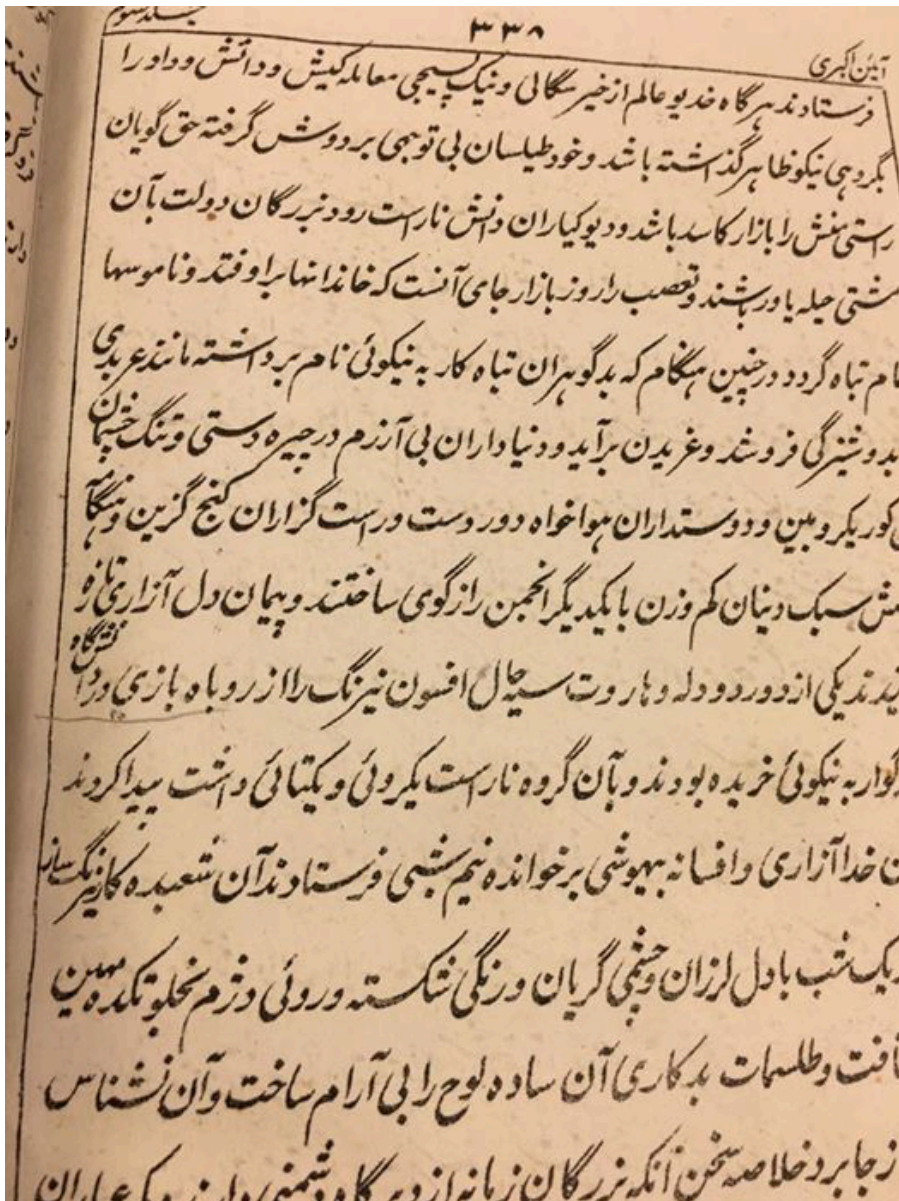 ۳۳۸
آئین اکبری
فرستادند هرگاه خدیو عالم از خیر سگالی و نیک پسیجی معامله کیش و دانش و داد را
بگروهی نیکو ظاهر گذاشته باشد و خود طیلسان بی توجهی بر دوش گرفته حق گویان
راستی منش را بازار کاسد باشد و دیو کیاران دانش ناراست رو و بزرگان دولت بآن
مشتی حیله یاور باشند و تعصب را روز بازار جای آنست که خاندانها برافتد و ناموسها
تباه گردد در چنین هنگام که بدگوهران تباه کار به نیکوئی نام برداشته مانند عربدی
بدوشیزگی فروشد و غریدن برآید و دنیاداران بی آزرم در چیره دستی و تنگ چشمان
کور یکرو بین و دوستداران هواخواه دور دست و راست گزاران کنج گزین و هنگامه
سبک دینان کم وزن با یکدیگر انجمن رازگوی ساختند و پیمان دل آزاری تازه
یکی از دور دو دله و هاروت سیه چال افسون نیرنگ را از روباه بازی در
به نیکوئی خریده بودند و بآن گروه ناراست یکروئی و یکتائی داشت پیدا کردند
خدا آزاری و افسانه بیهوشی برخوانده نیم شبی فرستادند آن شعبده کار نیرنگ ساز
یک شب با دل لرزان و چشمی گریان و رنگی شکسته و روئی دژم بخلوتکده مهین
و طلسمات بدکاری آن ساده لوح را بی آرام ساخت و آن نشناس
از جا برد خلاصه سخن آنکه بزرگان زمانه از دیرگاه دشمنی